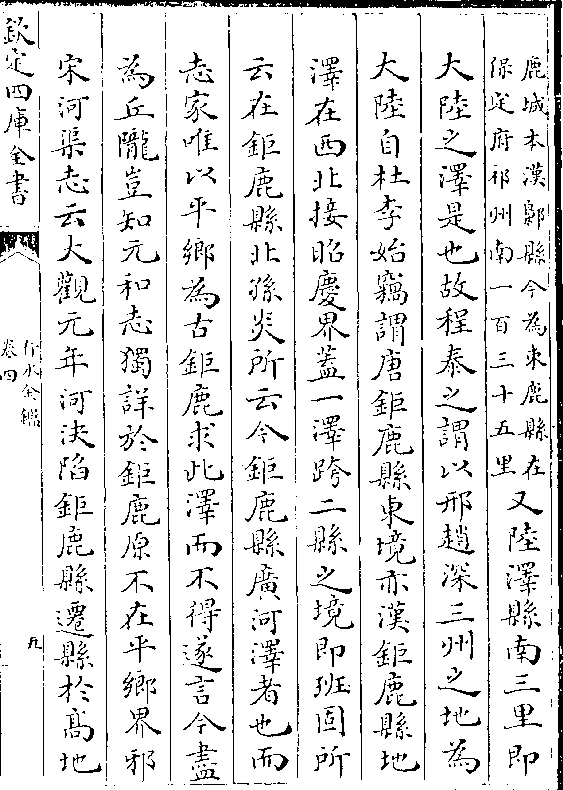 鹿城本漢鄡縣今為束鹿縣在
保定府祁州南一百三十五里
又陸澤縣南三里即
大陸之澤是也故程泰之謂以邢趙深三州之地為
大陸自杜李始竊謂唐鉅鹿縣東境亦漢鉅鹿縣地
澤在西北接昭慶界蓋一澤跨二縣之境即班固所
云在鉅鹿縣北孫炎所云今鉅鹿縣廣河澤者也而
志家唯以平鄉為古鉅鹿求此澤而不得遂言今盡
為丘隴豈知元和志獨詳於鉅鹿原不在平鄉界邪
宋河渠志云大觀元年河決陷鉅鹿縣遷縣於高地
欽定四庫全書
行水金鑑
卷四
九